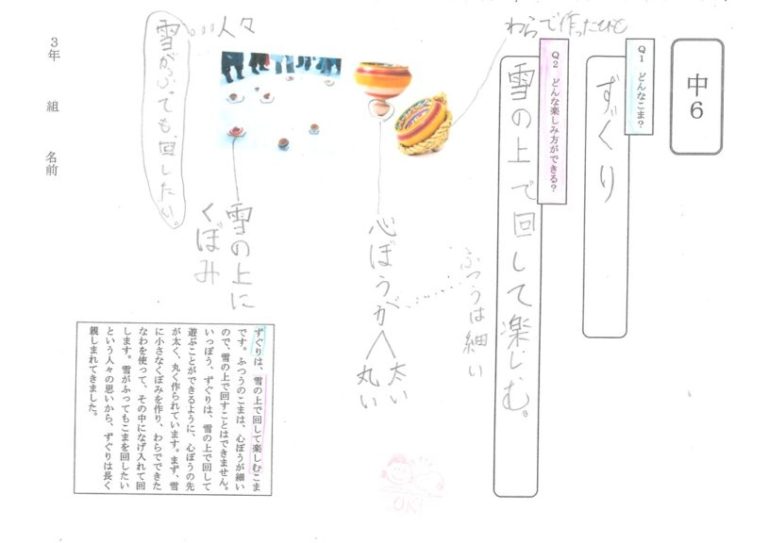 中6
Q1 どんなこま?
ずぐり
Q2 どんな楽しみ方ができる?
雪の上で回して楽しむ。
わらで作ったひも
ふつうは細い
心ぼうが
太い
丸い
雪の上に
くぼみ
人々
雪がふっても、回したい。
ずぐりは、雪の上で回して楽しむこま
です。ふつうのこまは、心ぼうが細い
ので、雪の上で回すことはできません。
いっぽう、ずぐりは、雪の上で回して
遊ぶことができるように、心ぼうの先
が太く、丸く作られています。まず、雪
に小さなくぼみを作り、わらでできた
なわを使って、その中になげ入れて回
します。雪がふってもこまを回したい
という人々の思いから、ずぐりは長く
親しまれてきました。
3年 組 名前
OK!